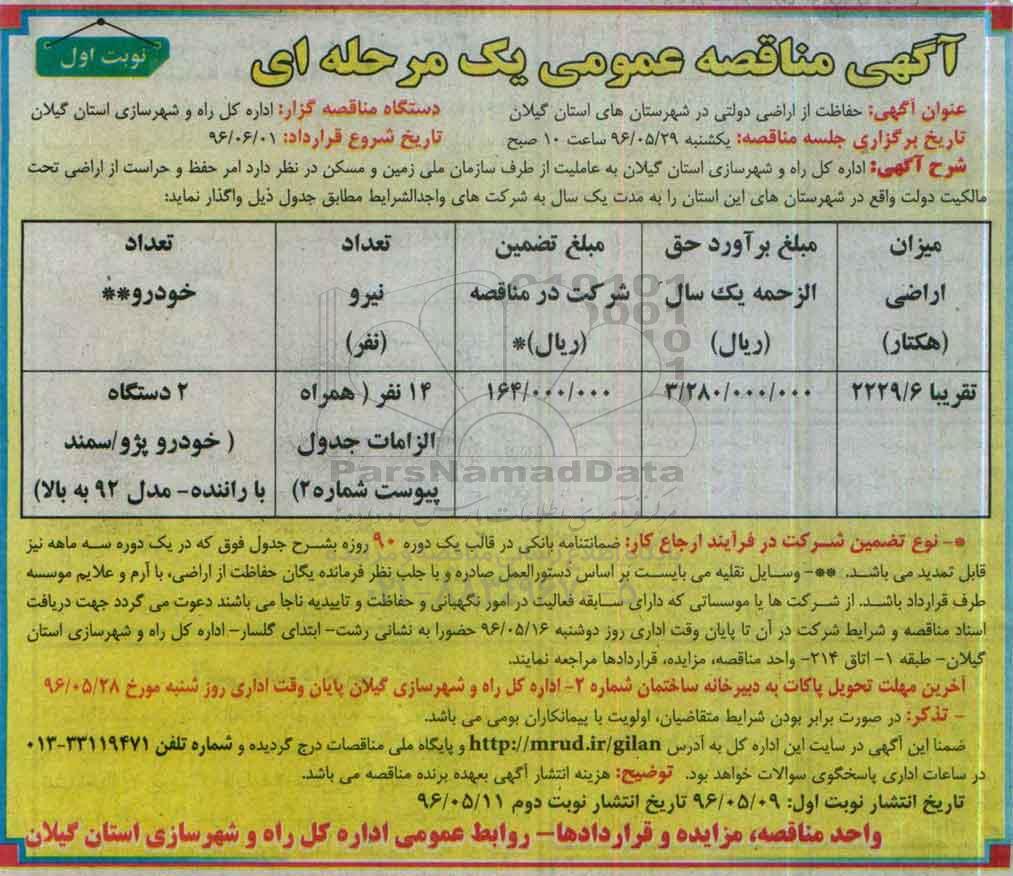 نوبت اول
آگهی مناقصه عمومی یک مرحله ای
عنوان آگهی: حفاظت از اراضی دولتی در شهرستان های استان گیلان
دستگاه مناقصه گزار: اداره کل راه و شهرسازی استان گیلان
تاریخ برگزاری جلسه مناقصه: یکشنبه ۹۶/۰۵/۲۹ ساعت ۱۰ صبح
تاریخ شروع قرارداد: ۹۶/۰۶/۰۱
شرح آگهی: اداره کل راه و شهرسازی استان گیلان به عاملیت از طرف سازمان ملی زمین و مسکن در نظر دارد امر حفظ و حراست از اراضی تحت
مالکیت دولت واقع در شهرستان های این استان را به مدت یک سال به شرکت های واجدالشرایط مطابق جدول ذیل واگذار نماید:
میزان
اراضی
(هکتار)
مبلغ برآورد حق
الزحمه یک سال
(ریال)
مبلغ تضمین
شرکت در مناقصه
(ریال)*
تعداد
نیرو
(نفر)
تعداد
خودرو**
تقریبا ۲۲۲۹/۶
۳/۲۸۰/۰۰۰/۰۰۰
۱۶۴/۰۰۰/۰۰۰
۱۴ نفر ( همراه
الزامات جدول
پیوست شماره۲)
۲ دستگاه
( خودرو پژو/سمند
با راننده- مدل ۹۲ به بالا)
ParsNamadData
*- نوع تضمین شرکت در فرآیند ارجاع کار: ضمانتنامه بانکی در قالب یک دوره ۹۰ روزه بشرح جدول فوق که در یک دوره سه ماهه نیز
قابل تمدید می باشد. **- وسایل نقلیه می بایست بر اساس دستورالعمل صادره و با جلب نظر فرمانده یگان حفاظت از اراضی، با آرم و علایم موسسه
طرف قرارداد باشد. از شرکت ها یا موسساتی که دارای سابقه فعالیت در امور نگهبانی و حفاظت و تاییدیه ناجا می باشند دعوت می گردد جهت دریافت
اسناد مناقصه و شرایط شرکت در آن تا پایان وقت اداری روز دوشنبه ۹۶/۰۵/۱۶ حضورا به نشانی رشت- ابتدای گلسار- اداره کل راه و شهرسازی استان
گیلان- طبقه ۱- اتاق ۲۱۴- واحد مناقصه، مزایده، قراردادها مراجعه نمایند.
آخرین مهلت تحویل پاکات به دبیرخانه ساختمان شماره ۲- اداره کل راه و شهرسازی گیلان پایان وقت اداری روز شنبه مورخ ۹۶/۰۵/۲۸
- تذکر: در صورت برابر بودن شرایط متقاضیان، اولویت با پیمانکاران بومی می باشد.
ضمنا این آگهی در سایت این اداره کل به آدرس http://mrud.ir/gilan و پایگاه ملی مناقصات درج گردیده و شماره تلفن ۳۳۱۱۹۴۷۱-۰۱۳
در ساعات اداری پاسخگوی سوالات خواهد بود. توضیح: هزینه انتشار آگهی بعهده برنده مناقصه می باشد.
تاریخ انتشار نوبت اول: ۹۶/۰۵/۰۹ تاریخ انتشار نوبت دوم ۹۶/۰۵/۱۱
واحد مناقصه، مزایده و قراردادها- روابط عمومی اداره کل راه و شهرسازی استان گیلان